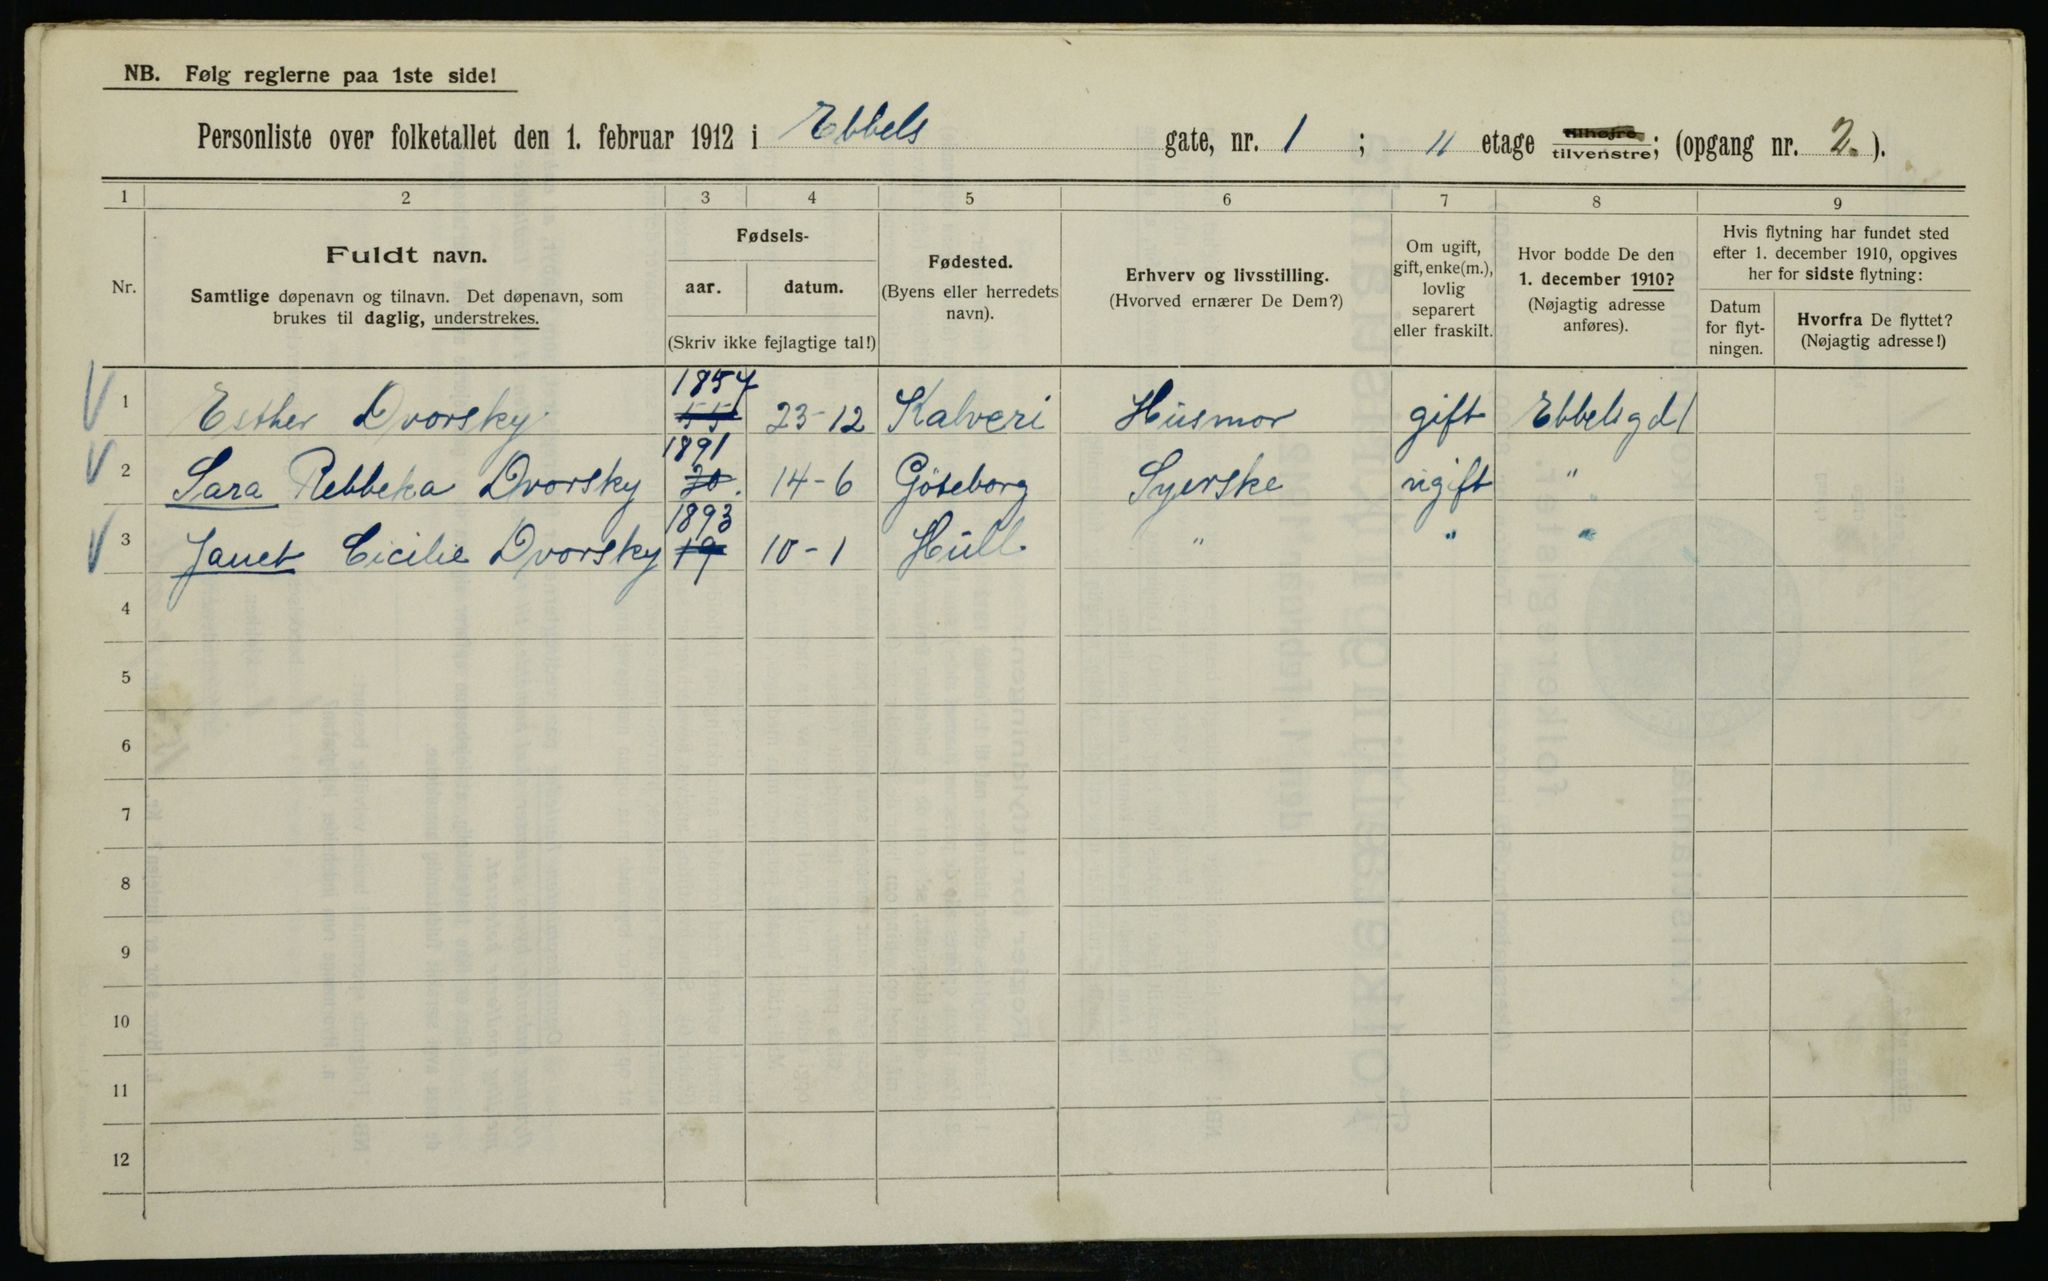 NB. Følg reglerne paa 1ste side!
Personliste over folketallet den 1. februar 1912 i Ebbels gate, nr. 1 ; 11 etage tilhøjre tilvenstre; (opgang nr. 2. ).
1 2 3 4 5 6 7 8 9
Nr.
Fuldt navn.
Samtlige døpenavn og tilnavn. Det døpenavn, som
brukes til daglig, understrekes.
Fødsels-
aar. datum.
(Skriv ikke fejlagtige tal!)
Fødested.
(Byens eller herredets
navn).
Erhverv og livsstilling.
(Hvorved ernærer De Dem?)
Om ugift,
gift, enke(m.),
lovlig
separert
eller fraskilt.
Hvor bodde De den
1. december 1910?
(Nøjagtig adresse
anføres).
Hvis flytning har fundet sted
efter 1. december 1910, opgives
her for sidste flytning:
Datum
for flyt-
ningen.
Hvorfra De flyttet?
(Nøjagtig adresse!)
1 Esther Dvorsky 1854 55 23-12 Kalveri Husmor gift Ebbelsgd 1
2 Sara Rebbeka Dvorsky 1891 20. 14-6 Göteborg Syerske ugift "
3 Janet Cicilie Dvorsky 1893 19 10-1 Hull " " "
4
5
6
7
8
9
10
11
12